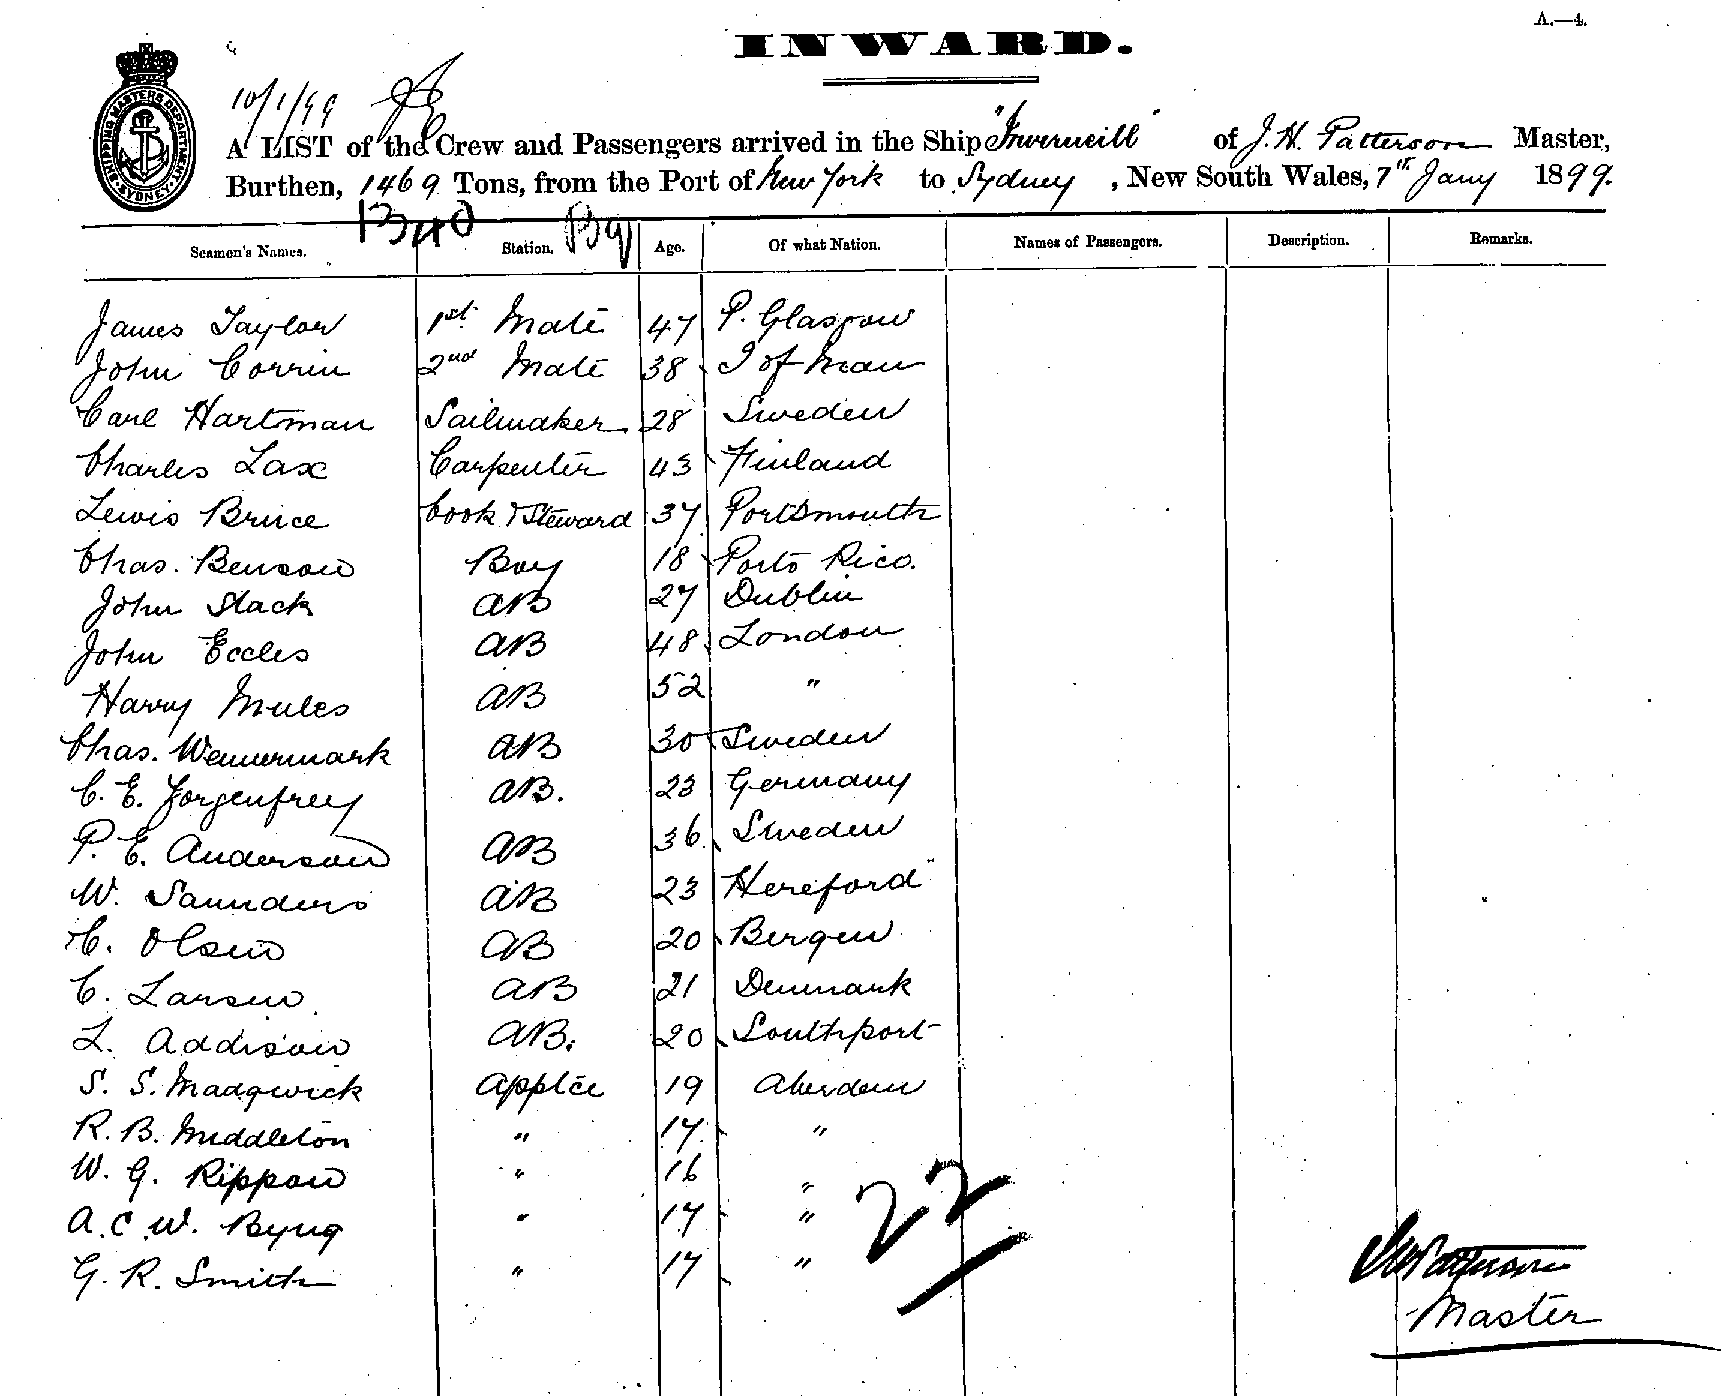 A.—4.
INWARD.
SHIPPING MASTERS DEPARTMENT SYDNEY
10/1/99
A LIST of the Crew and Passengers arrived in the Ship "Inverneill" of J. H. Patterson Master,
Burthen, 1469 Tons, from the Port of New York to Sydney, New South Wales, 7th Jany 1899.
1340
Seamen's Names. Station. Age. Of what Nation. Names of Passengers. Description. Remarks.
James Taylor 1st Mate 47 P. Glasgow
John Corrin 2nd Mate 38 I of Man
Carl Hartman Sailmaker 28 Sweden
Charles Lax Carpenter 43 Finland
Lewis Bruce Cook & Steward 37 Portsmouth
Chas. Benson Boy 18 Porto Rico.
John Slack AB 27 Dublin
John Eccles AB 48 London
Harry Mules AB 52 "
Chas. Wennermark AB 30 Sweden
C. E. Jorgenfrey AB. 23 Germany
P. E. Anderson AB 36 Sweden
W. Saunders AB 23 Hereford
C. Olsen AB 20 Bergen
C. Larsen AB 21 Denmark
L. Addison AB. 20 Southport
S. S. Madgwick Apptce 19 Aberdeen
R. B. Middleton " 17 "
W. G. Rippon " 16 "
A. C. W. Byng " 17 "
G. R. Smith " 17 "
22
JHPatterson
Master